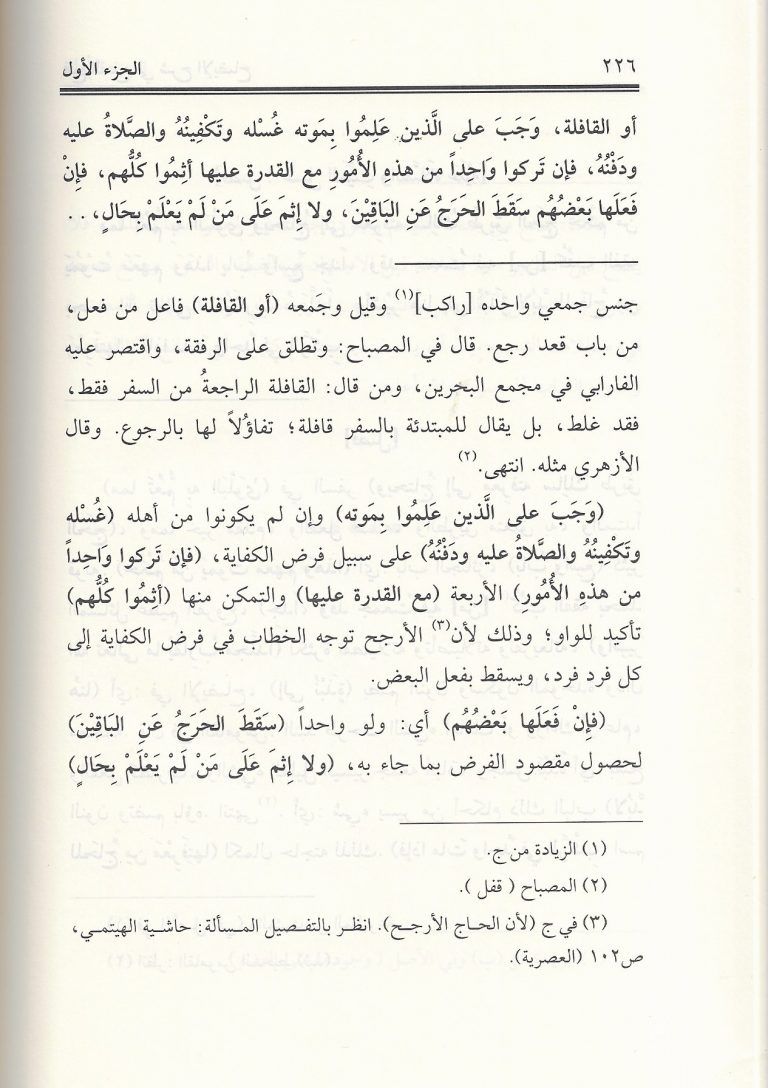 ٢٢٦ الجزء الأول
أو القافلة، وَجَبَ على الَّذين عَلِمُوا بِمَوته غُسْله وتَكْفِينُهُ والصَّلاةُ عليه
ودَفْنُهُ، فإن تَركوا وَاحِداً من هذهِ الأُمُورِ مع القدرة عليها أَثِمُوا كُلُّهم، فإِنْ
فَعَلَها بَعْضُهُم سَقَطَ الحَرَجُ عَنِ البَاقِيْنَ، ولا إِثمَ عَلَى مَنْ لَمْ يَعْلَمْ بِحَالٍ، . .
جنس جمعي واحده [راكب](١) وقيل وجَمعه (أو القافلة) فاعل من فعل،
من باب قعد رجع. قال في المصباح: وتطلق على الرفقة، واقتصر عليه
الفارابي في مجمع البحرين، ومن قال: القافلة الراجعةُ من السفر فقط،
فقد غلط، بل يقال للمبتدئة بالسفر قافلة؛ تفاؤُلاً لها بالرجوع. وقال
الأزهري مثله. انتهى.(٢)
(وَجَبَ على الَّذين عَلِمُوا بِمَوته) وإن لم يكونوا من أهله (غُسْله
وتَكْفِينُهُ والصَّلاةُ عليه ودَفْنُهُ) على سبيل فرض الكفاية، (فإن تَركوا وَاحِداً
من هذهِ الأُمُورِ) الأربعة (مع القدرة عليها) والتمكن منها (أَثِمُوا كُلُّهم)
تأكيد للواو؛ وذلك لأن(٣) الأرجح توجه الخطاب في فرض الكفاية إلى
كل فرد فرد، ويسقط بفعل البعض.
(فإِنْ فَعَلَها بَعْضُهُم) أي: ولو واحداً (سَقَطَ الحَرَجُ عَنِ البَاقِيْنَ)
لحصول مقصود الفرض بما جاء به، (ولا إِثمَ عَلَى مَنْ لَمْ يَعْلَمْ بِحَالٍ)
(١) الزيادة من ج.
(٢) المصباح ( قفل ).
(٣) في ج (لأن الحاج الأرجح). انظر بالتفصيل المسألة: حاشية الهيتمي،
ص١٠٢ (العصرية).